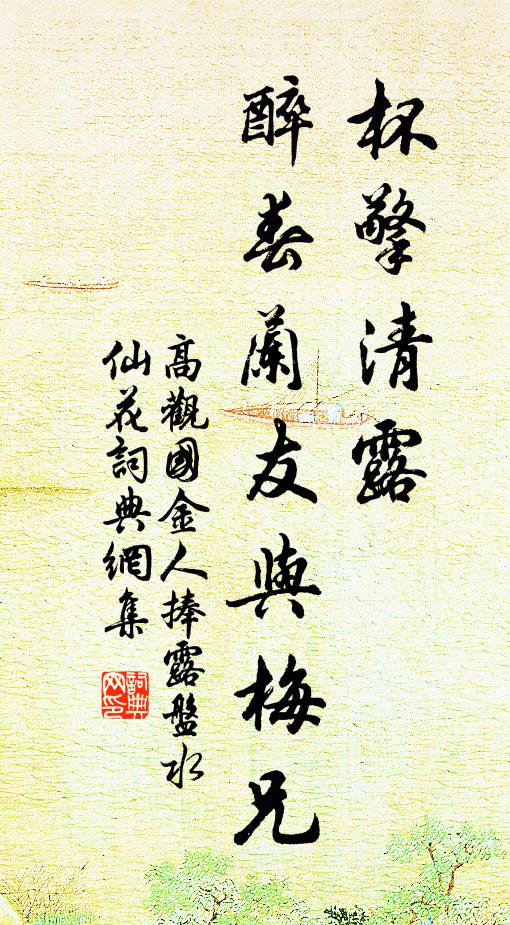 杯擎清露
醉春蘭友與梅兄
高觀國金人捧露盤水
仙花詞典網集
詞典
网印